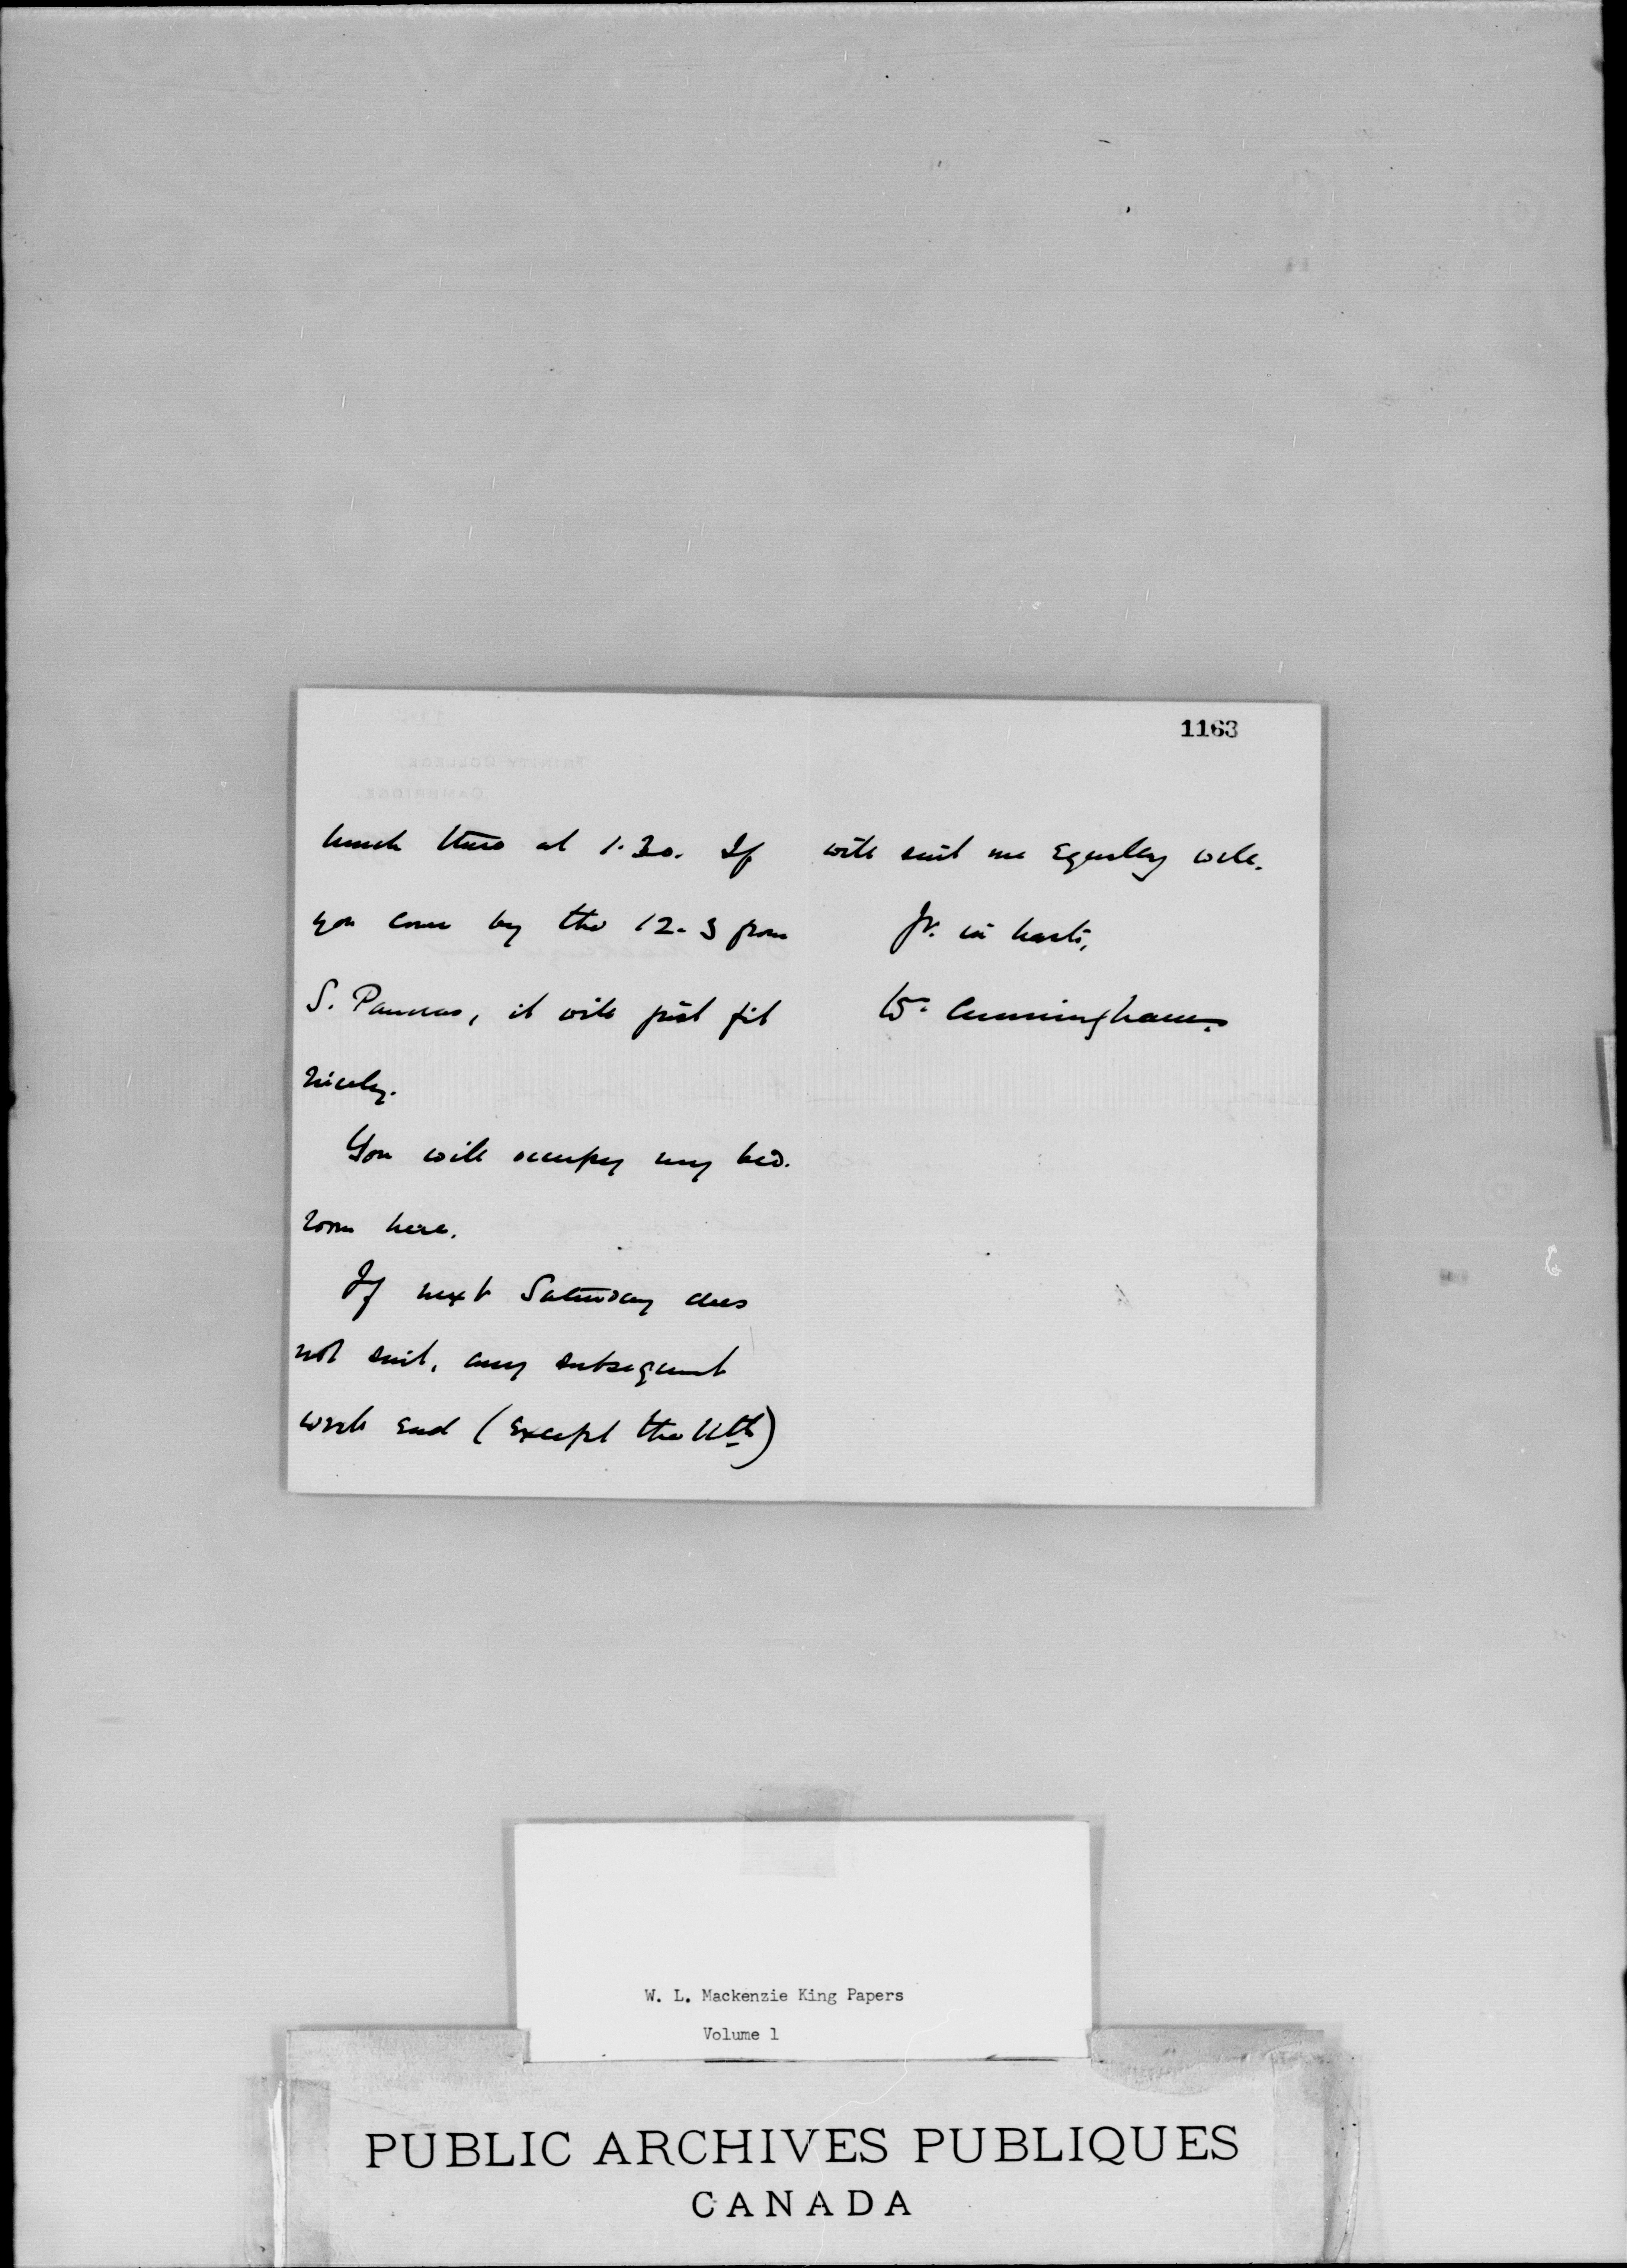 1163
lunch there at 1.30. If
you come by the 12.3 from
S. Pancras, it will just fit
nicely.
You will occupy my bed.
room here.
If next Saturday does
not suit, any subsequent
week end (except the 11th)
will suit me equally well.
Yr. in haste,
W. Cunningham.
TRINITY COLLEGE,
CAMBRIDGE.
W. L. Mackenzie King Papers
Volume 1
PUBLIC ARCHIVES PUBLIQUES
CANADA